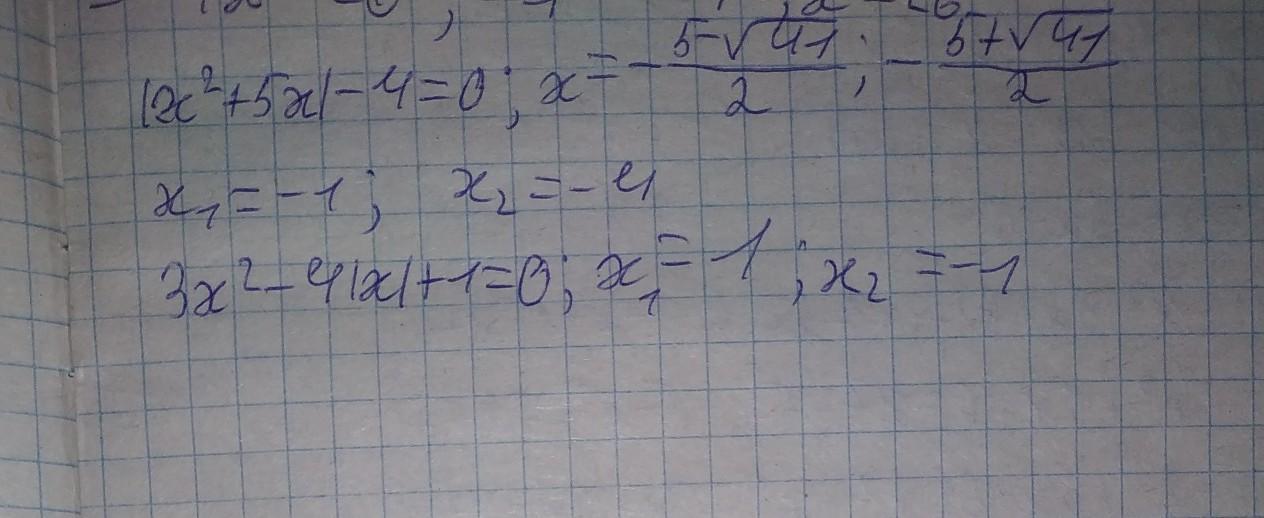 |x²+5x|-4=0; x=-(5-√41)/2; -(5+√41)/2
x₁=-1; x₂=-4
3x²-4|x|+1=0; x₁=1; x₂=-1